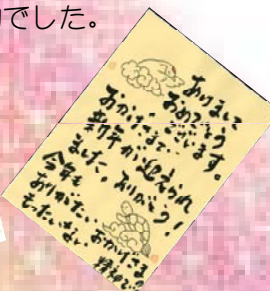 でした。
ありまして
おめでとう
ございます。
おかげさまで
新年が迎えられ
ました。ありがとう!
今年も
ありがたい、おかげさま
もったいない、
精神で!!